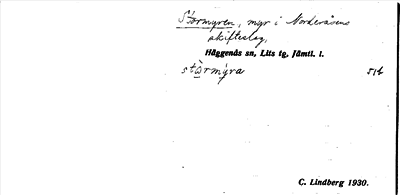 Stormyren, myr i Norderåsens
skifteslag,
Häggenås sn, Lits tg, Jämtl. l.
stòrmýra 51b
C. Lindberg 1930.